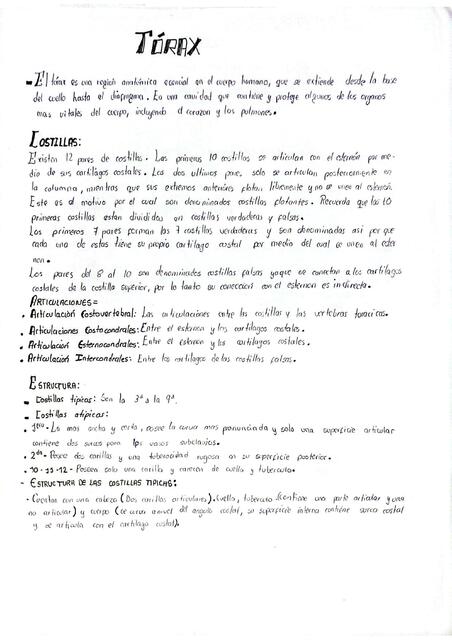 TÓRAX
- El tórax es una región anatómica esencial en el cuerpo humano, que se extiende desde la base
del cuello hasta el diafragma. Es una cavidad que contiene y protege algunos de los organos
mas vitales del cuerpo, incluyendo el corazon y los pulmones.
COSTILLAS:
Existen 12 pares de costillas. Las primeros 10 costillas se articulan con el esternón por me-
dio de sus cartílagos costales. Los dos ultimos pares, solo se articulan posteriormente en
la columna, mientras que sus extremos anteriores flotan libremente y no se unen al esternon.
Este es el motivo por el cual son denominados costillas flotantes. Recuerda que las 10
primeras costillas estan divididas en costillas verdaderas y falsas.
Los primeros 7 pares forman las 7 costillas verdaderas y son denominadas asi por que
cada una de estas tiene su propio cartilago costal por medio del cual se unen al ester
non.
Los pares del 8 al 10 son denominados costillas falsas ya que se conectan a los cartilagos
costales de la costilla superior, por lo tanto su coneccion con el esternon es indirecta.
ARTICULACIONES=
• Articulación Costovertebral: Las articulaciones entre las costillas y las vertebras toracicas.
• Articulaciones Costocondrales: Entre el esternon y los cartilagos costales.
• Articulación Esternocondrales: Entre el esternon y los cartilagos costales.
• Articulación Intercondrales: Entre los cartilagos de las costillas falsas.
ESTRUCTURA:
- Costillas típicas: Son la 3ª a la 9ª.
- Costillas atípicas:
• 1era- La mas ancha y corta, posee la curva mas pronunciada y solo una superficie articular
contiene dos surcos para los vasos subclavios.
• 2da- Posee dos carillas y una tuberosidad rugosa en su superficie posterior.
• 10-11-12- Poseen solo una carilla y carecen de cuello y tuberculo.
- ESTRUCTURA DE LAS COSTILLAS TIPICAS:
- Cuentan con una cabeza (Dos carillas articulares). Cuello, tuberculo (contiene una parte articular y una
no articular) y cuerpo (se curva a nivel del angulo costal, su superficie interna contiene surco costal
y se articula con el cartilago costal).